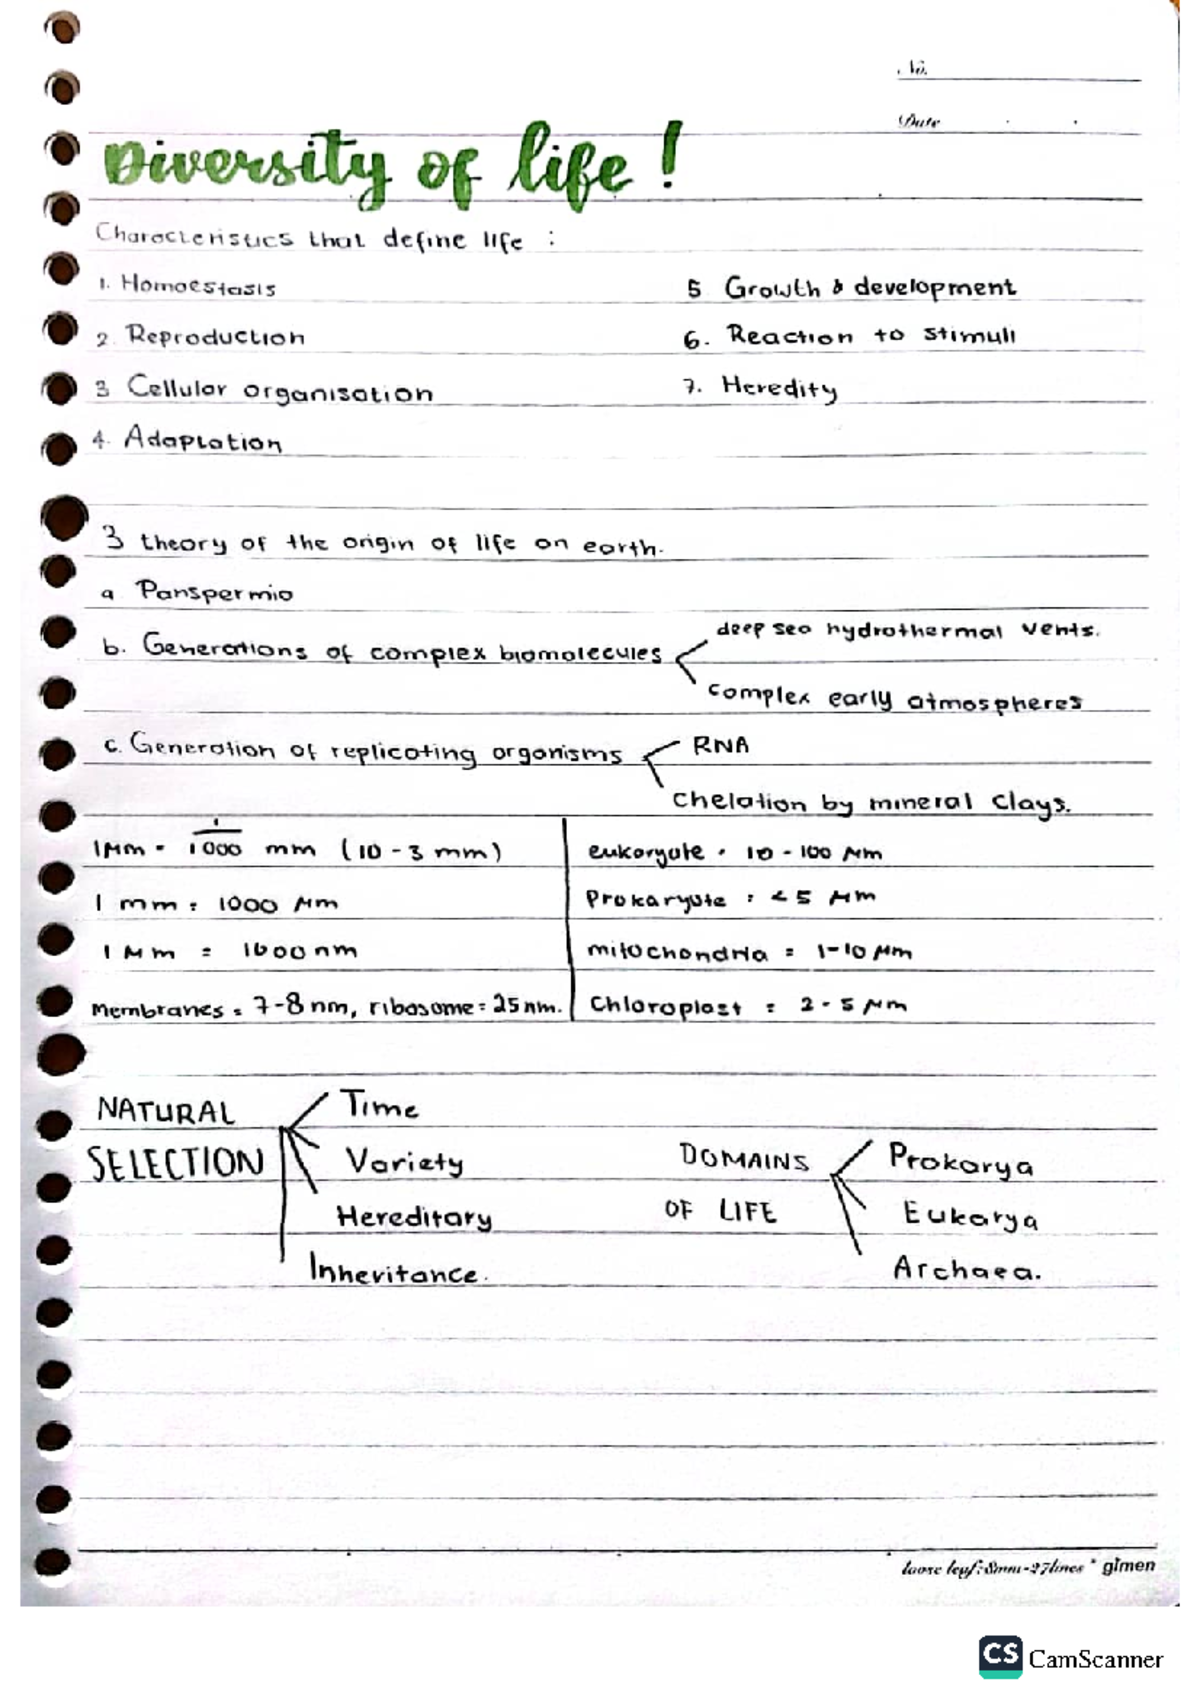 No.
Date
Diversity of life!
Characteristics that define life :
1. Homoestasis
2. Reproduction
3 Cellular organisation
4. Adaptation
5 Growth & development
6. Reaction to stimuli
7. Heredity
3 theory of the origin of life on earth.
a Panspermia
b. Generations of complex biomolecules
deep sea hydrothermal vents.
complex early atmospheres
c. Generation of replicating organisms
RNA
Chelation by mineral clays.
1 μm = 1/1000 mm (10 - 3 mm)
1 mm = 1000 μm
1 μm = 1000 nm
Membranes = 7-8 nm, ribosome = 25 nm.
eukaryote = 10 - 100 μm
Prokaryote = < 5 μm
mitochondria = 1-10 μm
Chloroplast = 2 - 5 μm
NATURAL
SELECTION
Time
Variety
Hereditary
Inheritance.
DOMAINS
OF LIFE
Prokarya
Eukarya
Archaea.
loose leaf: 8mm - 27lines * gimen
CS CamScanner